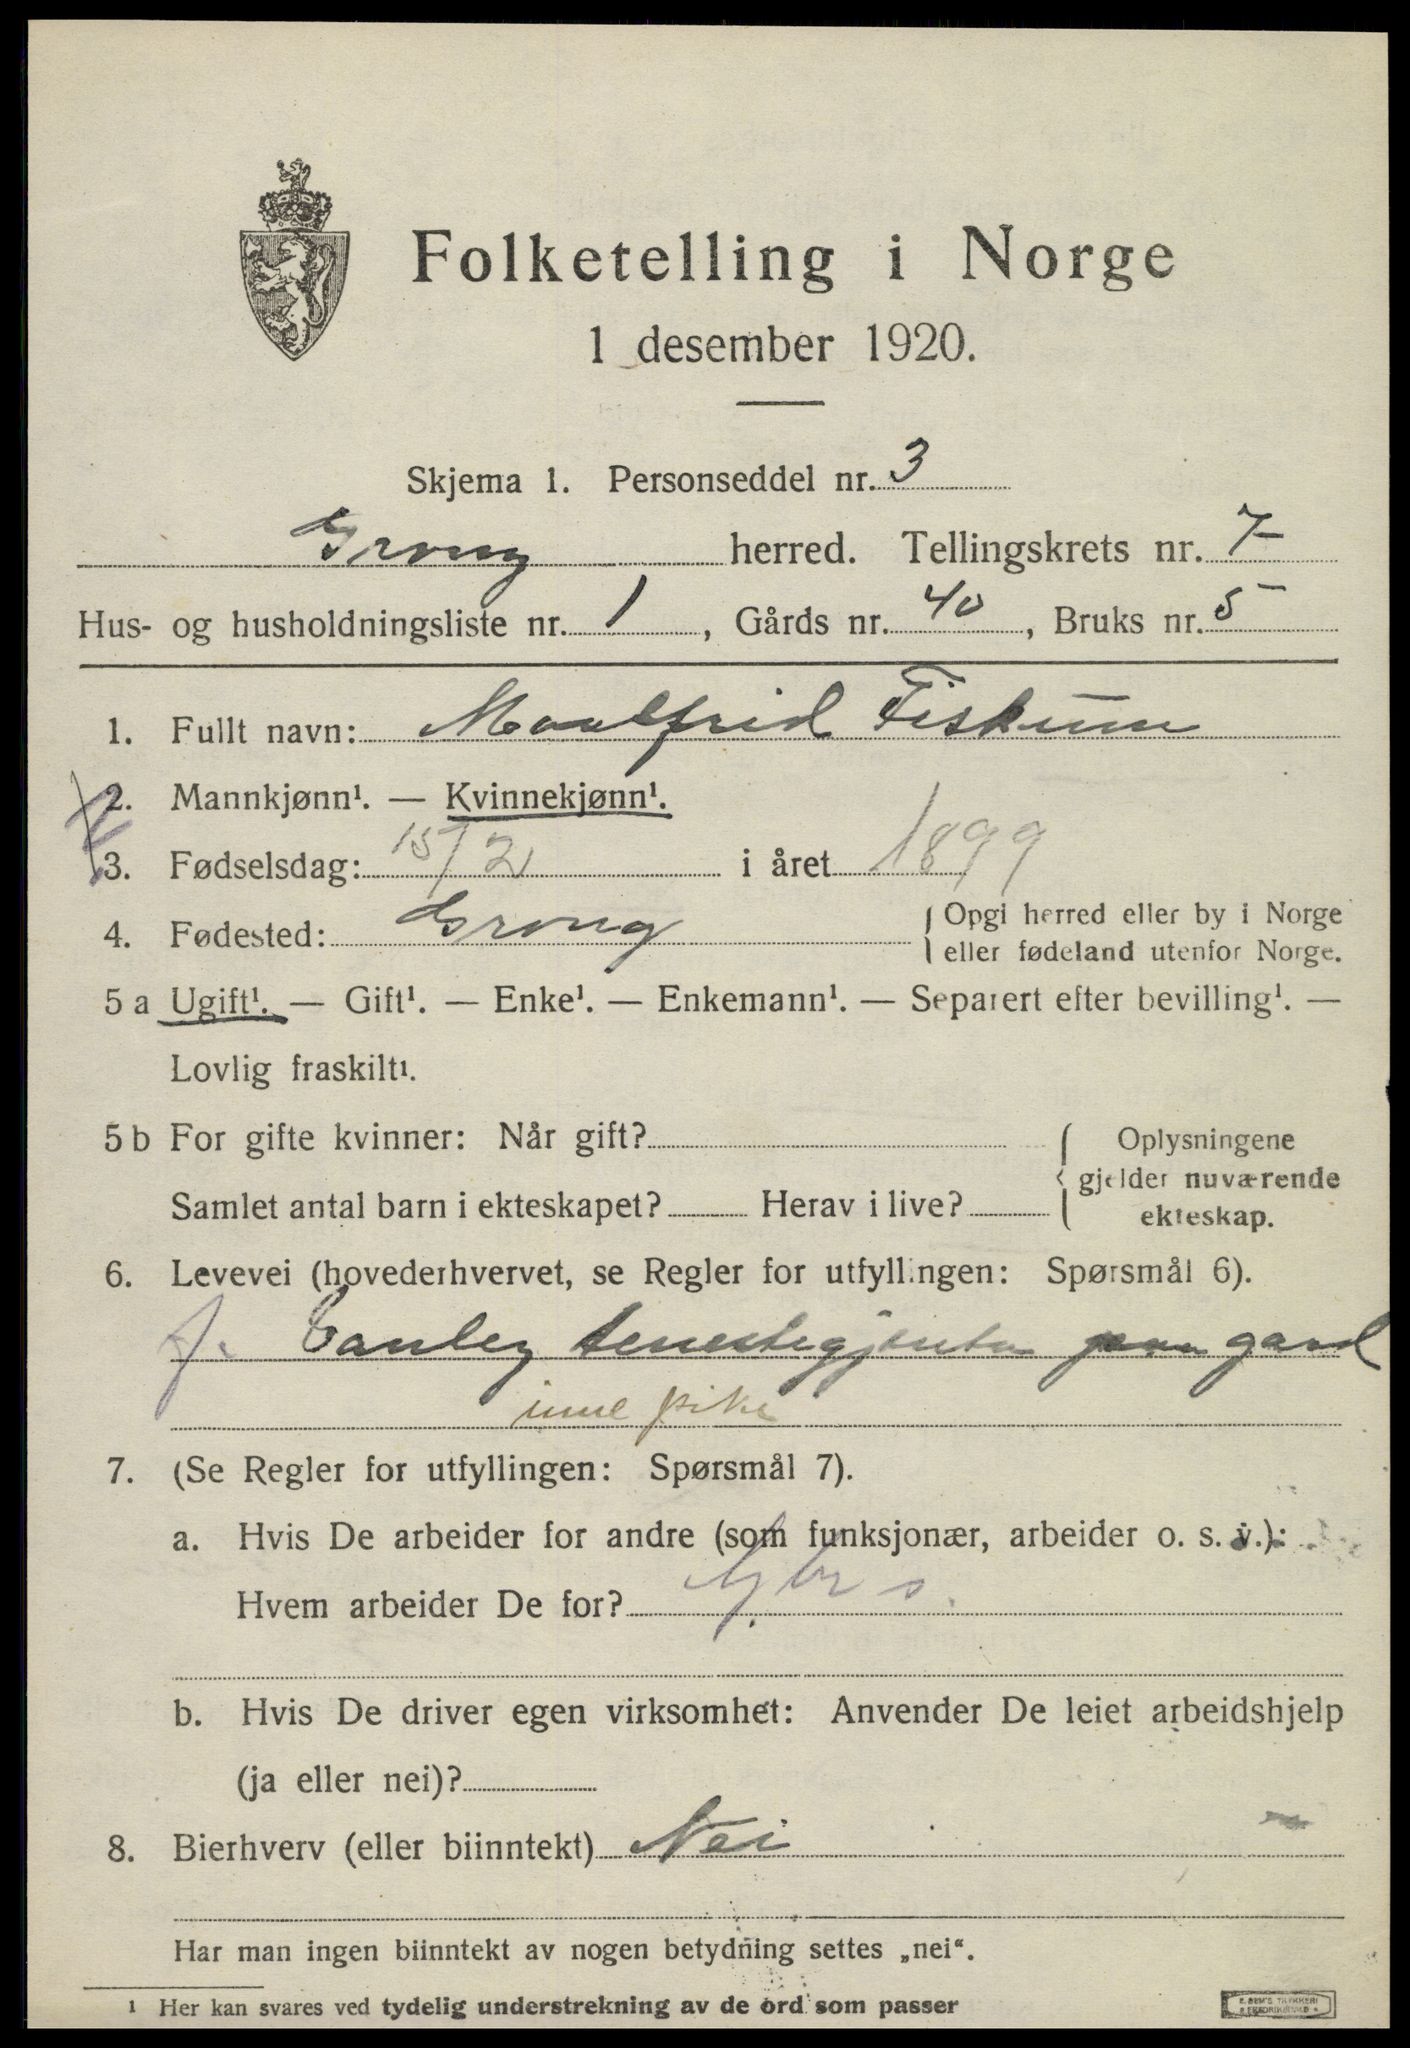 Folketelling i Norge
1 desember 1920.
Skjema 1. Personseddel nr. 3
Grong herred. Tellingskrets nr. 7
Hus- og husholdningsliste nr. 1, Gårds nr. 40, Bruks nr. 5
1. Fullt navn: Maalfrid Fiskum
2. Mannkjønn¹. — Kvinnekjønn¹.
3. Fødselsdag: 15/2 i året 1899
4. Fødested: Grong { Opgi herred eller by i Norge
eller fødeland utenfor Norge.
5 a Ugift¹. — Gift¹. — Enke¹. — Enkemann¹. — Separert efter bevilling¹. —
Lovlig fraskilt¹.
5 b For gifte kvinner: Når gift? { Oplysningene
gjelder nuværende
Samlet antal barn i ekteskapet? Herav i live?
ekteskap.
6. Levevei (hovederhvervet, se Regler for utfyllingen: Spørsmål 6).
tenestegjenta paa gard
inne pike
7. (Se Regler for utfyllingen: Spørsmål 7).
a. Hvis De arbeider for andre (som funksjonær, arbeider o. s. v.):
Hvem arbeider De for? Gbr s.
b. Hvis De driver egen virksomhet: Anvender De leiet arbeidshjelp
(ja eller nei)?
8. Bierhverv (eller biinntekt) Nei
Har man ingen biinntekt av nogen betydning settes „nei“.
¹ Her kan svares ved tydelig understrekning av de ord som passer